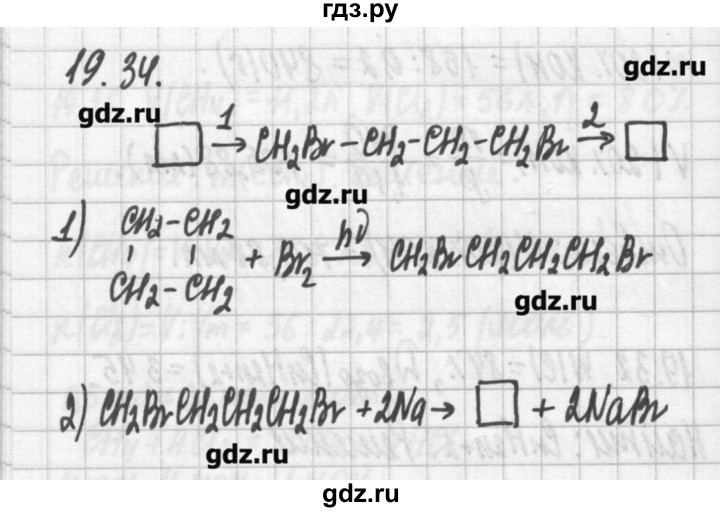 гдз.ру
19.34.
gdz.ru
gdz.ru
□ 1→ CH₂Br-CH₂-CH₂-CH₂Br 2→ □
gdz.ru
1) CH₂-CH₂
CH₂-CH₂ + Br₂ hν→ CH₂BrCH₂CH₂CH₂Br
gdz.ru
2) CH₂BrCH₂CH₂CH₂Br + 2Na → □ + 2NaBr
gdz.ru
gdz.ru